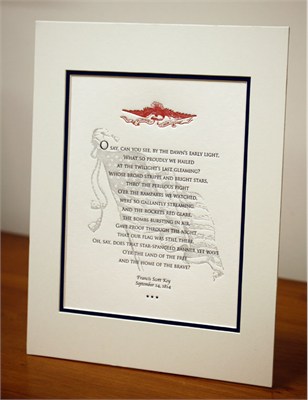 O SAY, CAN YOU SEE, BY THE DAWN'S EARLY LIGHT,
WHAT SO PROUDLY WE HAILED
AT THE TWILIGHT'S LAST GLEAMING?
WHOSE BROAD STRIPES AND BRIGHT STARS,
THRO' THE PERILOUS FIGHT
O'ER THE RAMPARTS WE WATCHED,
WERE SO GALLANTLY STREAMING.
AND THE ROCKETS RED GLARE,
THE BOMBS BURSTING IN AIR,
GAVE PROOF THROUGH THE NIGHT
THAT OUR FLAG WAS STILL THERE.
OH, SAY, DOES THAT STAR-SPANGLED BANNER YET WAVE
O'ER THE LAND OF THE FREE
AND THE HOME OF THE BRAVE?
Francis Scott Key
September 14, 1814